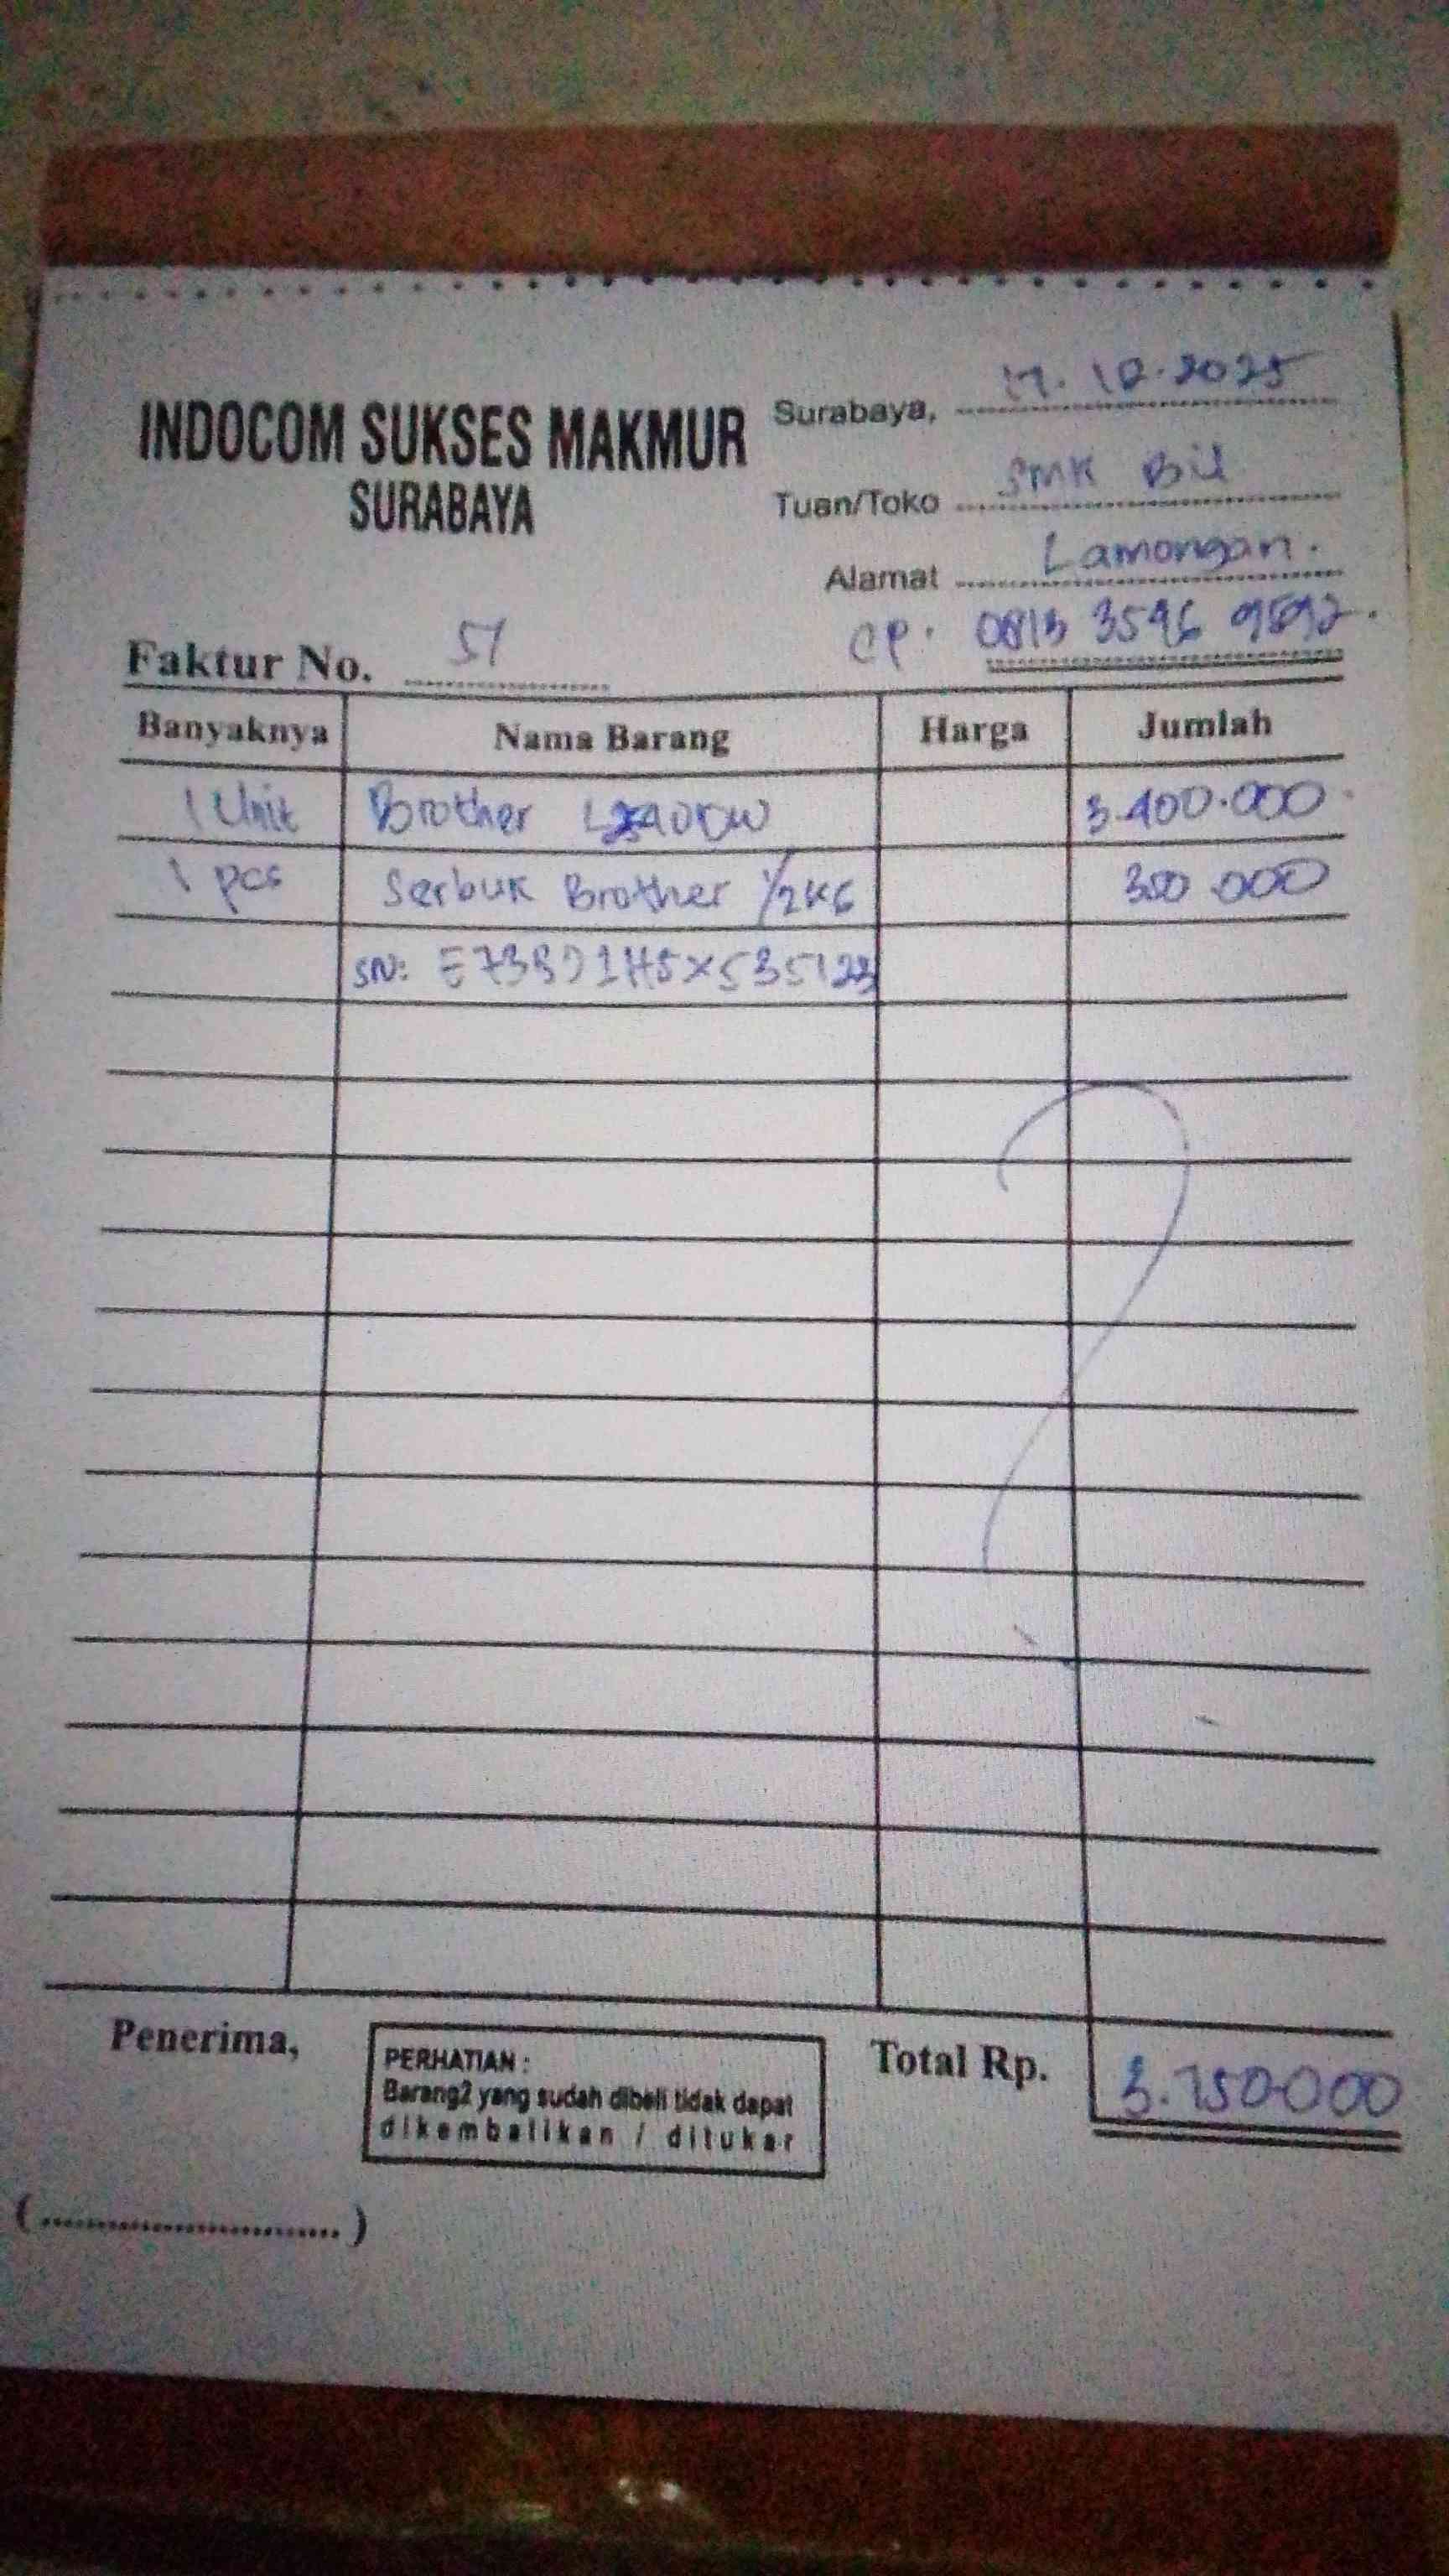 INDOCOM SUKSES MAKMUR
SURABAYA
Surabaya, 17.12.2025
Tuan/Toko SMK
Alamat Lamongan.
CP. 0813 3596 9592.
Faktur No. 51
Banyaknya Nama Barang Harga Jumlah
1 Unit Brother 3.400.000
1 pcs Serbuk Brother 1/2 KG
SN:
Penerima,
PERHATIAN :
Barang2 yang sudah dibeli tidak dapat
dikembalikan / ditukar
Total Rp. 3.750.000
(..............................)